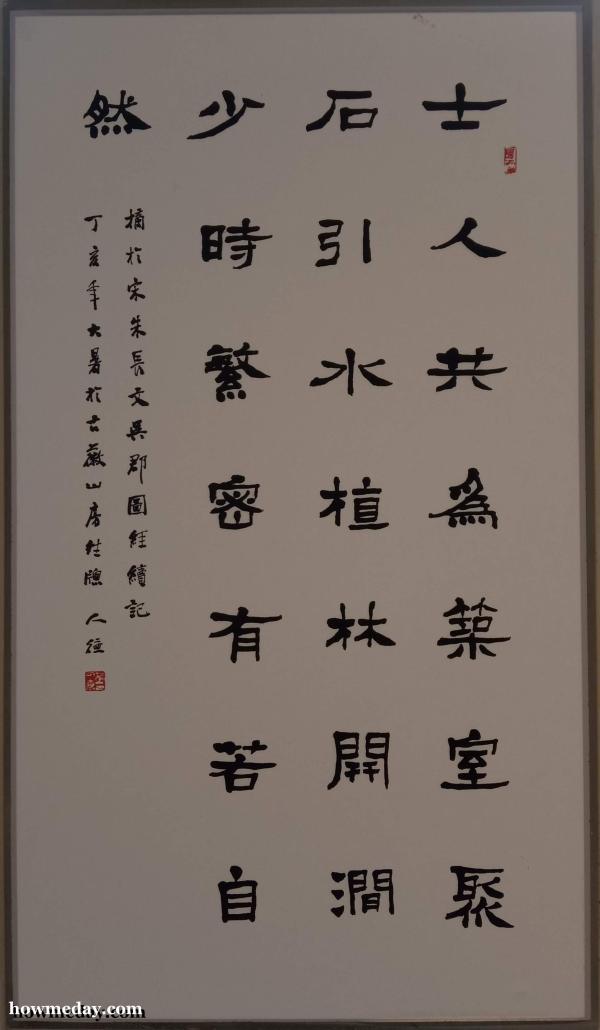 士人共為築室聚
石引水植林開澗
少時繁密有若自
然
摘於宋朱長文吳郡圖經續記
丁亥年大暑於古薇山房 人
howmeday.com